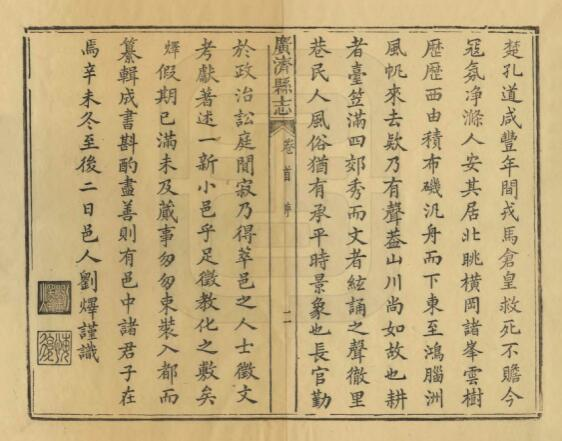 楚孔道咸豐年間戎馬倉皇救死不贍今
冦氛净滌人安其居北眺橫岡諸峯雲樹
歷歷西由積布磯汎舟而下東至鴻腦洲
風帆來去欵乃有聲葢山川尚如故也耕
者臺笠滿四郊秀而文者絃誦之聲徹里
巷民人風俗猶有承平時景象也長官勤
廣濟縣志
卷首
序
二
於政治訟庭閒寂乃得萃邑之人士徵文
考獻著述一新小邑乎足徵教化之敷矣
㷸假期已滿未及蕆事匆匆束裝入都而
纂輯成書斟酌盡善則有邑中諸君子在
焉辛未冬至後二日邑人劉㷸謹識